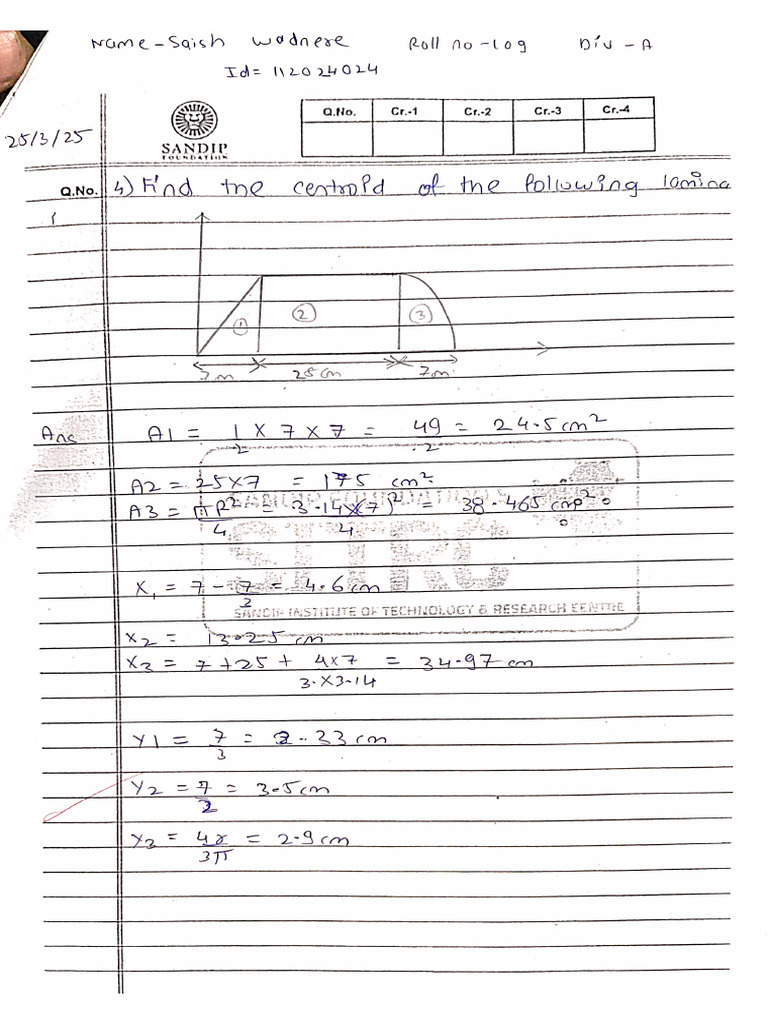 Name - Saish Wadnere Roll no - 109 Div - A
Id = 112024024
25/3/25
SANDIP
FOUNDATION
Q.No. Cr.-1 Cr.-2 Cr.-3 Cr.-4
Q.No. 4) Find the centroid of the following lamina
1 2 3
7m 25cm 7m
Ans A1 = 1/2 x 7 x 7 = 49/2 = 24.5 cm²
A2 = 25x7 = 175 cm²
A3 = πR²/4 = 3.14x(7)²/4 = 38.465 cm²
X1 = 7 - 7/3 = 4.6 cm
SANDIP INSTITUTE OF TECHNOLOGY & RESEARCH CENTRE
X2 = 13.25 cm
X3 = 7 + 25 + 4x7/3x3.14 = 34.97 cm
Y1 = 7/3 = 2.33 cm
Y2 = 7/2 = 3.5 cm
Y3 = 4r/3π = 2.9 cm